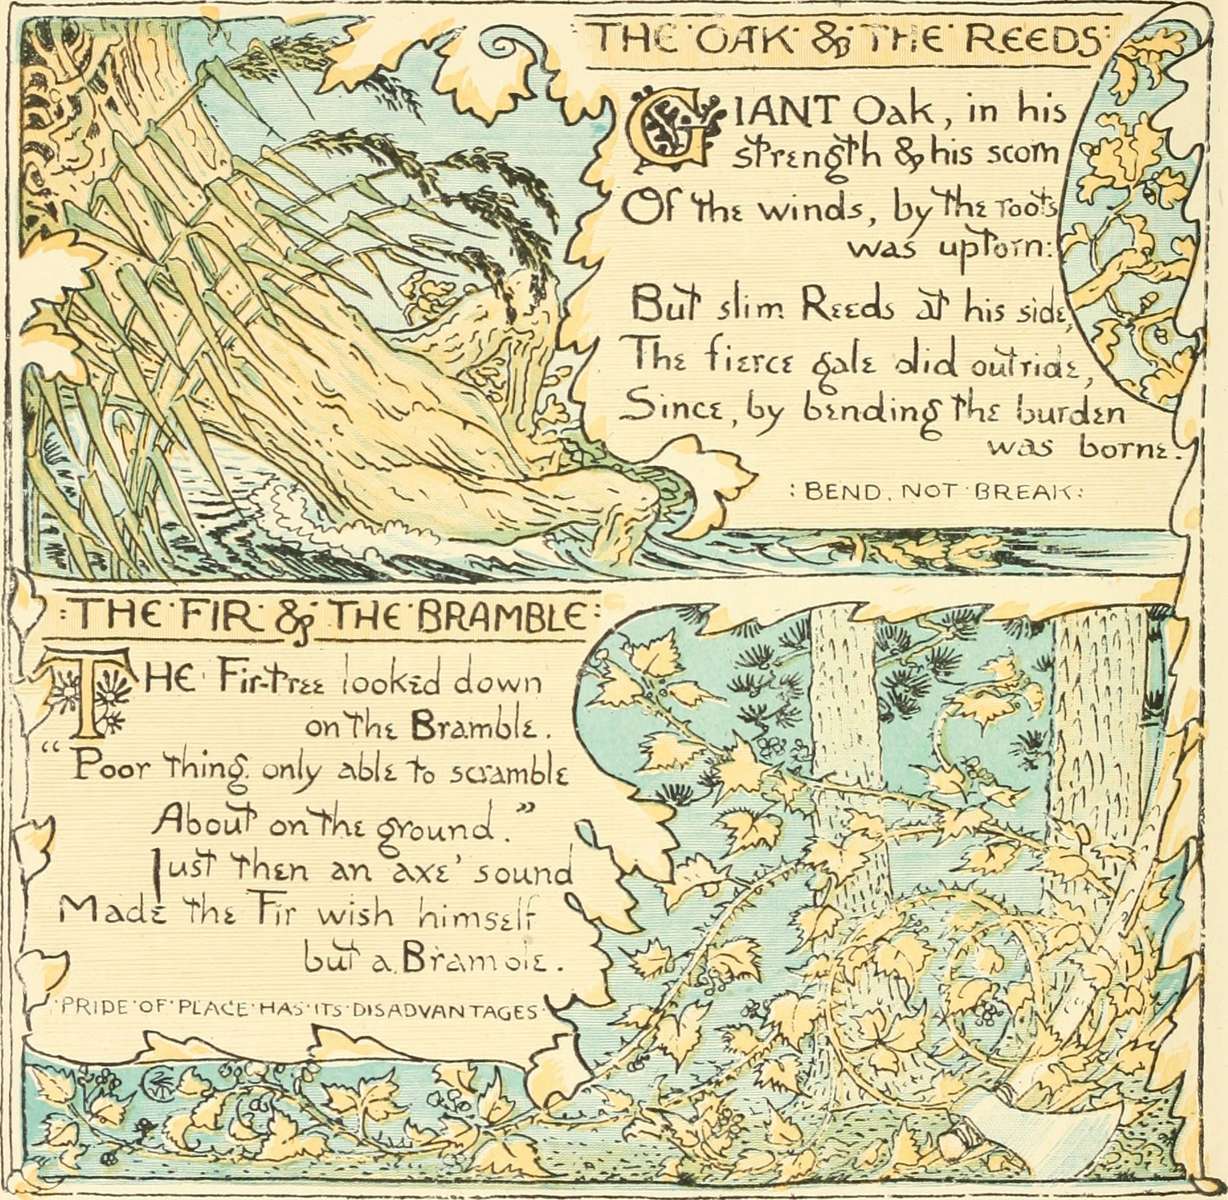 THE · OAK · & · THE · REEDS ·
GIANT Oak, in his
strength & his scorn
Of the winds, by the roots
was uptorn:
But slim Reeds at his side,
The fierce gale did outride,
Since, by bending the burden
was borne.
: BEND, NOT · BREAK :
: THE · FIR · & · THE · BRAMBLE :
THE Fir-tree looked down
on the Bramble.
“Poor thing, only able to scramble
About on the ground.”
Just then an axe' sound
Made the Fir wish himself
but a Bramble.
· PRIDE · OF · PLACE · HAS · ITS · DISADVANTAGES ·